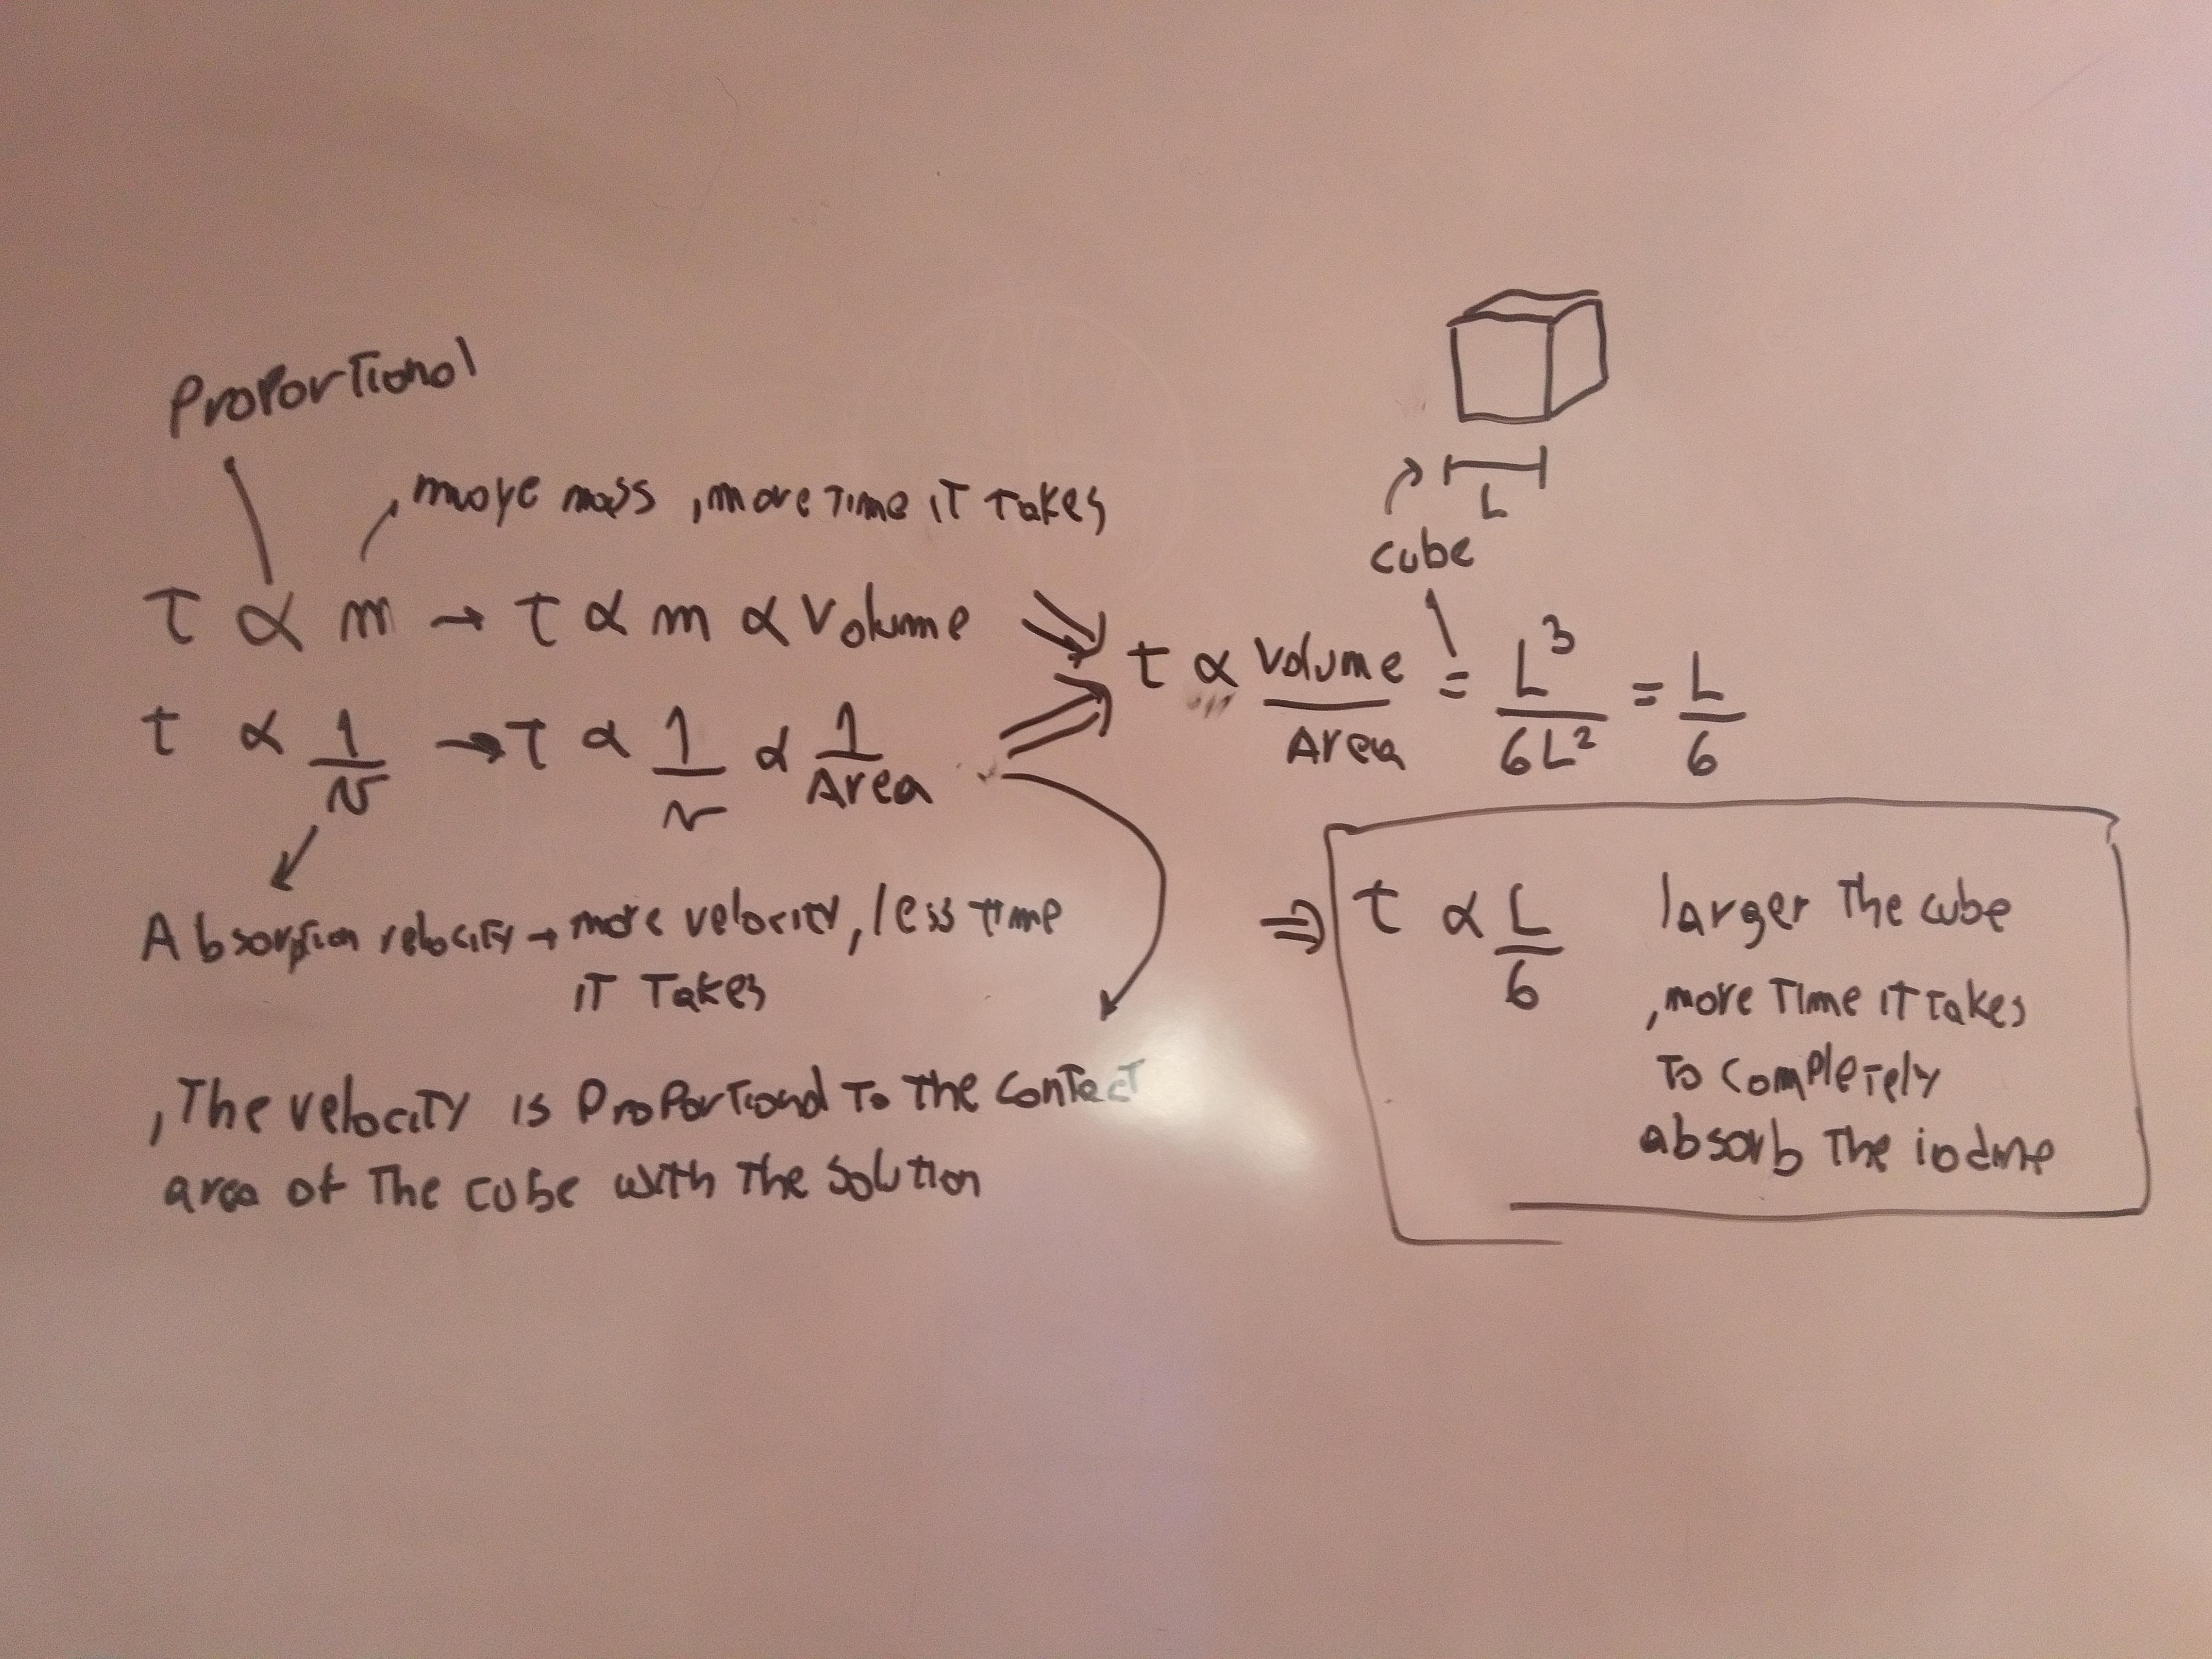 Proportional
more mass, more time it takes
t ∝ m → t ∝ m ∝ Volume
t ∝ 1/v → t ∝ 1/v ∝ 1/Area
Absorption velocity → more velocity, less time
it takes
, The velocity is proportional to the contact
area of the cube with the solution
L
cube
t ∝ Volume/Area = L³/6L² = L/6
⇒ t ∝ L/6
larger the cube
, more time it takes
to completely
absorb the iodine